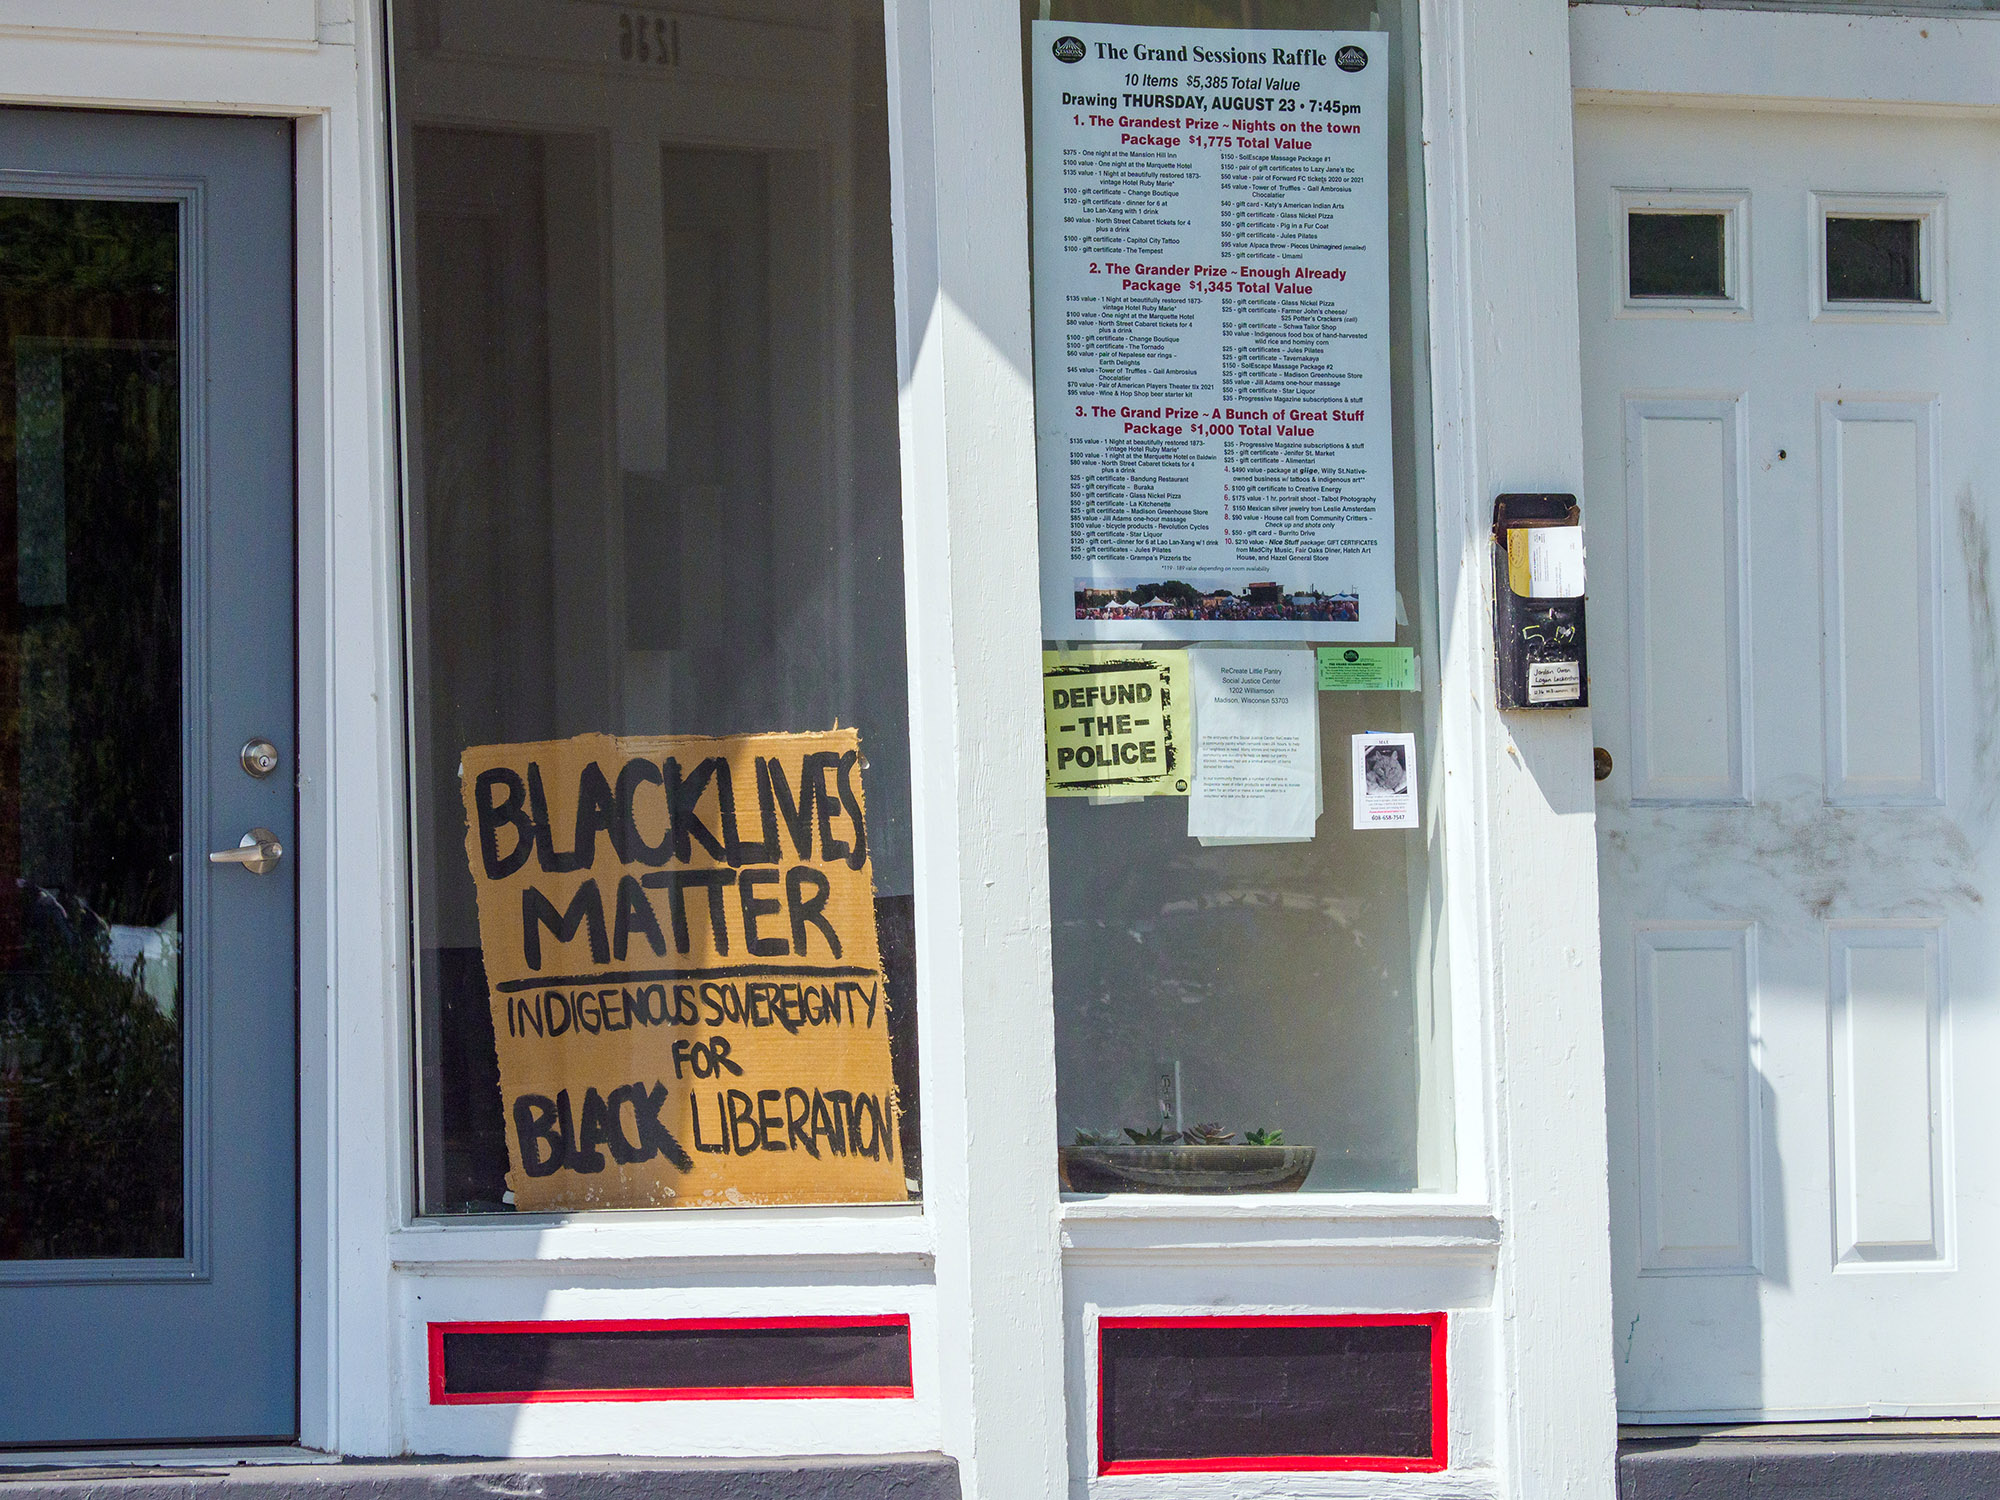 1236
BLACK LIVES
MATTER
INDIGENOUS SOVEREIGNTY
FOR
BLACK LIBERATION
SESSIONS
The Grand Sessions Raffle
SESSIONS
10 Items $5,385 Total Value
Drawing THURSDAY, AUGUST 23 • 7:45pm
1. The Grandest Prize ~ Nights on the town
Package $1,775 Total Value
$375 - One night at the Mansion Hill Inn
$100 value - One night at the Marquette Hotel
$135 value - 1 Night at beautifully restored 1873-
vintage Hotel Ruby Marie*
$100 - gift certificate ~ Change Boutique
$120 - gift certificate - dinner for 6 at
Lao Lan-Xang with 1 drink
$80 value - North Street Cabaret tickets for 4
plus a drink
$100 - gift certificate - Capitol City Tattoo
$100 - gift certificate - The Tempest
$150 - SolEscape Massage Package #1
$150 - pair of gift certificates to Lazy Jane's tbc
$50 value - pair of Forward FC tickets 2020 or 2021
$45 value - Tower of Truffles ~ Gail Ambrosius
Chocolatier
$40 - gift card - Katy's American Indian Arts
$50 - gift certificate - Glass Nickel Pizza
$50 - gift certificate - Pig in a Fur Coat
$50 - gift certificate - Jules Pilates
$95 value Alpaca throw - Pieces Unimagined (emailed)
$25 - gift certificate ~ Umami
2. The Grander Prize ~ Enough Already
Package $1,345 Total Value
$135 value - 1 Night at beautifully restored 1873-
vintage Hotel Ruby Marie*
$100 value - One night at the Marquette Hotel
$80 value - North Street Cabaret tickets for 4
plus a drink
$100 - gift certificate - Change Boutique
$100 - gift certificate - The Tornado
$60 value - pair of Nepalese ear rings ~
Earth Delights
$45 value - Tower of Truffles ~ Gail Ambrosius
Chocolatier
$70 value - Pair of American Players Theater tix 2021
$95 value - Wine & Hop Shop beer starter kit
$50 - gift certificate - Glass Nickel Pizza
$25 - gift certificate - Farmer John's cheese/
$25 Potter's Crackers (call)
$50 - gift certificate ~ Schwa Tailor Shop
$30 value - Indigenous food box of hand-harvested
wild rice and hominy corn
$25 - gift certificates - Jules Pilates
$25 - gift certificate - Tavernakaya
$150 - SolEscape Massage Package #2
$25 - gift certificate - Madison Greenhouse Store
$85 value - Jill Adams one-hour massage
$50 - gift certificate - Star Liquor
$35 - Progressive Magazine subscriptions & stuff
3. The Grand Prize ~ A Bunch of Great Stuff
Package $1,000 Total Value
$135 value - 1 Night at beautifully restored 1873-
vintage Hotel Ruby Marie*
$100 value - 1 night at the Marquette Hotel on Baldwin
$80 value - North Street Cabaret tickets for 4
plus a drink
$25 - gift certificate - Bandung Restaurant
$25 - gift ceryificate ~ Buraka
$50 - gift certificate - Glass Nickel Pizza
$50 - gift certificate - La Kitchenette
$25 - gift certificate ~ Madison Greenhouse Store
$85 value - Jill Adams one-hour massage
$100 value - bicycle products - Revolution Cycles
$50 - gift certificate - Star Liquor
$120 - gift cert. - dinner for 6 at Lao Lan-Xang w/1 drink
$25 - gift certificates ~ Jules Pilates
$50 - gift certificate - Grampa's Pizzeris tbc
$35 - Progressive Magazine subscriptions & stuff
$25 - gift certificate - Jenifer St. Market
$25 - gift certificate - Alimentari
4. $490 value - package at giige, Willy St. Native-
owned business w/ tattoos & indigenous art**
5. $100 gift certificate to Creative Energy
6. $175 value - 1 hr. portrait shoot - Talbot Photography
7. $150 Mexican silver jewelry from Leslie Amsterdam
8. $90 value - House call from Community Critters ~
Check up and shots only
9. $50 - gift card ~ Burrito Drive
10. $210 value - Nice Stuff package: GIFT CERTIFICATES
from MadCity Music, Fair Oaks Diner, Hatch Art
House, and Hazel General Store
*119 - 189 value depending on room availability
DEFUND
-THE-
POLICE
ReCreate Little Pantry
Social Justice Center
1202 Williamson
Madison, Wisconsin 53703
THE GRAND SESSIONS RAFFLE
608-658-7547
Jordan Owen